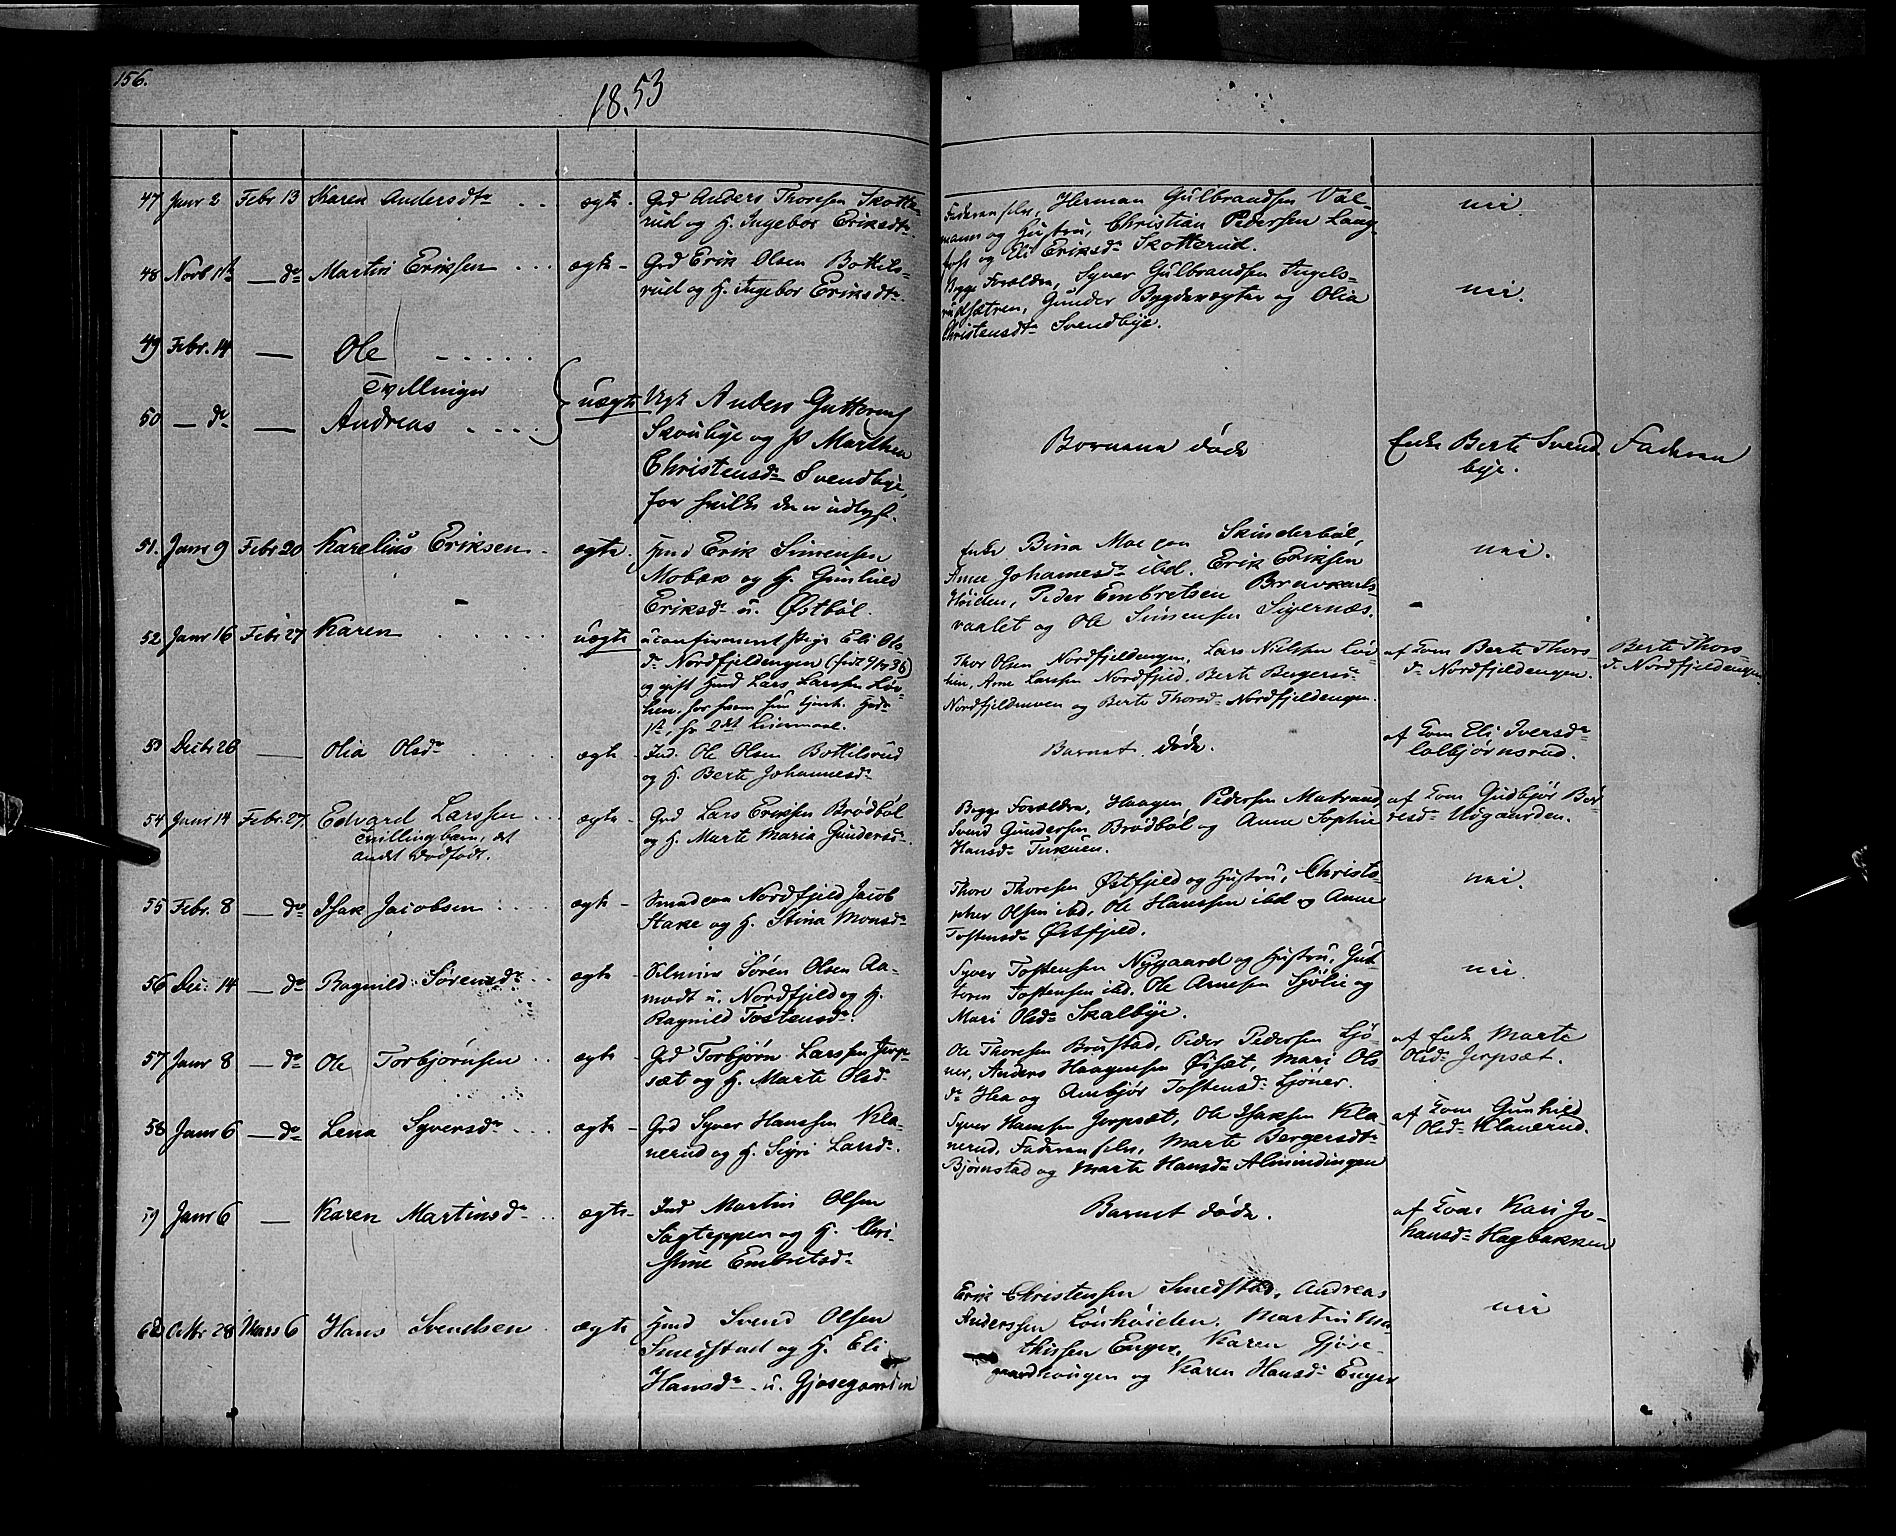 156.
1853
47 Janr 2 Febr 13 Karen Andersdtr . . ægte - Grd Anders Thoresen Skotte-
rud og H. Ingebor Eriksdtr.
Faderen selv, Herman Gulbrandsen Val-
mann og Hustru, Christian Pedersen Lang-
og Eli Eriksdr Skotterud.
nei.
48 Novb 11te — do Martin Eriksen . . . ægte - Grd Erik Olsen Bottils-
rud og H. Ingebor Eriksdtr.
Begge Forældre, Syver Gulbrandsen Ingels-
rudsætren, Gunder Bygdevægter og Olia
Christensdtr Svendbye.
nei.
49 Febr. 14 — Ole - . . . . .
Tvillinger
50 — do — Andreas . . . .
uægte Ugk Anders Guttormsen
Skoubye og P Marthea
Christensdr Svendbye,
for hvilke der er udlyst.
Børnene døde
Enke Berte Svend-
bye.
Faderen
51. Janr 9 Febr 20 Karelius Eriksen - ægte. Hmd Erik Simensen
Mobæk og H. Gunhild
Eriksdr u. Østbøl.
Enke Bina Moe paa Skinderbøl,
Anne Johannesdr ibd. Erik Eriksen
Høiden, Peder Embretsen Bravkarls-
vaalet og Ole Simensen Sigernæs.
nei.
52 Janr 16 Febr 27 Karen . . . . . uægte uconfirmeret Pige Eli Ols-
dr Nordfjeldengen
og gift Hmd Lars Larssen Løv-
hen, for ham hun
1ste, for 2det Leiermaal.
Thor Olsen Nordfjeldengen, Lars Nielsen Løv-
hen, Arne Larssen Nordfjeld, Berte Bergersdr
Nordfjeldmoen og Berte Thorsdr Nordfjeldengen.
af Tom Berte Thors-
dr Nordfjeldengen.
Berte Thors-
dr Nordfjeldengen.
53 Decbr 26 — Olia Olsdr . . . . ægte - Ind. Ole Olsen Bottilsrud
og H. Berte Johannesdr
Barnet døde.
af Tom Eli Iversdr
Colbjørnsrud.
54 Janr 14 Febr. 27 Edvard Larssen . . .
Tvillingbarn, det
andet dødfødt.
ægte - Grd Lars Eriksen Brødbøl
og H. Marte Maria Gundersdr.
Begge Forældre, Haagen Pedersen Matrand,
Svend Gundersen Brødbøl og Anne Sophie
Hansdr Tukuen.
af Tom Gudbjør Bør-
resdr Udgaarden.
55 Febr. 8 — do Isak Jacobsen . . . ægte - Smed paa Nordfjeld Jacob
Stake og H. Stina Monsdr
Thore Thoresen Østfjeld og Hustru, Christo-
pher Olsen ibd, Ole Hanssen ibd og Anne
Tostensdr Østfjeld.
nei.
56 Dec. 14 — do Ragnild Sørensdr . . ægte - Selveier Søren Olsen Aa-
modt u. Nordfjeld og H.
Ragnild Tostensdr.
Syver Tostensen Nygaard og Hustru, Gut-
torm Tostensen ibd. Ole Arnesen Sjølie og
Mari Olsdr Skalbye.
nei.
57 Janr 8 — do Ole Torbjørnsen . . ægte - Grd Torbjørn Larssen Jerp-
sæt og H. Marte Olsdr
Ole Thoresen Brustad, Peder Pedersen Ljø-
ner, Anders Haagensen Øisæt, Mari Ols-
dr Hea og Ambjør Tostensdr Ljøner.
af Enke Marte
Olsdr Jerpsæt.
58 Janr 6 — do Lena Syversdr . . . ægte - Grd Syver Hanssen Kla-
nerud og H. Sigri Larsdr.
Syver Hanssen Jerpsæt, Ole Isaksen Kla-
nerud, Faderen selv, Marte Bergersdtr
Bjørnstad og Marte Hansdr Almindingen
af Tom Gunhild
Olsdr Klanerud.
59 Janr 6 — Karen Martinsdr . . ægte - Ind Martin Olsen
Sagteppen og H. Chri-
stine Embretsdr
Barnet døde.
af Tom Kari Jo-
hansdr Hagbakken
60 Octbr 28 Mars 6 Hans Svendsen . . ægte Hmd Svend Olsen
Smedstad og H. Eli
Hansdr u. Gjøsegaarden
Erik Christensen Smedstad, Andreas
Anderssen Lønhøiden, Martin Ma-
thissen Enger, Karen Gjøse-
gaardsvingen og Karen Hansdr Enger
nei